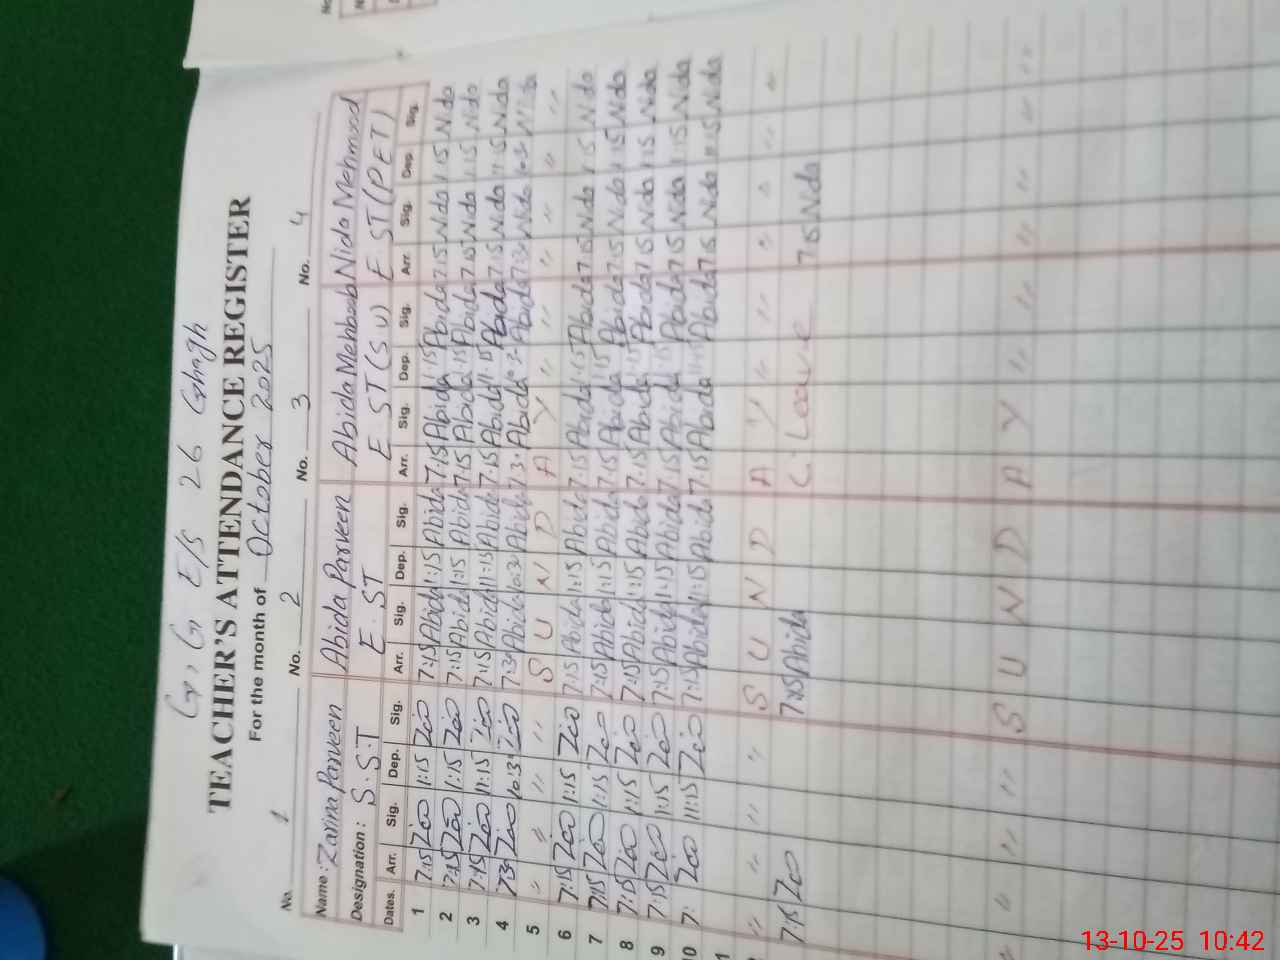 G.G E/S 26 Ghagh
TEACHER'S ATTENDANCE REGISTER
For the month of October 2025
No. 1 No. 2 No. 3 No. 4
Name: Zarina Parveen Abida Parveen Abida Mehboob Nida Mehmood
Designation: S.S.T E.ST E ST (S.U) E ST (PET)
Dates. Arr. Sig. Dep. Sig. Arr. Sig. Dep. Sig. Arr. Sig. Dep. Sig. Arr. Sig. Dep. Sig.
1 7:15 1:15 7:15 Abida 1:15 Abida 7:15 Abida 1:15 Abida 7:15 Nida 1:15 Nida
2 7:15 1:15 7:15 Abida 1:15 Abida 7:15 Abida 1:15 Abida 7:15 Nida 1:15 Nida
3 7:15 11:15 7:15 Abida 11:15 Abida 7:15 Abida 11:15 Abida 7:15 Nida 11:15 Nida
4 7:30 10:30 7:30 Abida 10:30 Abida 7:30 Abida Abida 7:30 Nida Nida
5 " " " " S U N D A Y " " " " "
6 7:15 1:15 7:15 Abida 1:15 Abida 7:15 Abida 1:15 Abida 7:15 Nida 1:15 Nida
7 7:15 1:15 7:15 Abida 1:15 Abida 7:15 Abida 1:15 Abida 7:15 Nida 1:15 Nida
8 7:15 1:15 7:15 Abida 1:15 Abida 7:15 Abida 1:15 Abida 7:15 Nida 1:15 Nida
9 7:15 1:15 7:15 Abida 1:15 Abida 7:15 Abida 1:15 Abida 7:15 Nida 1:15 Nida
10 7: 11:15 7:15 Abida 11:15 Abida 7:15 Abida 11:15 Abida 7:15 Nida 11:15 Nida
" " " " S U N D A Y " " " " " "
7:15 7:15 Abida C. Leave 7:15 Nida
" " " " S U N D A Y " " " " " "
13-10-25 10:42